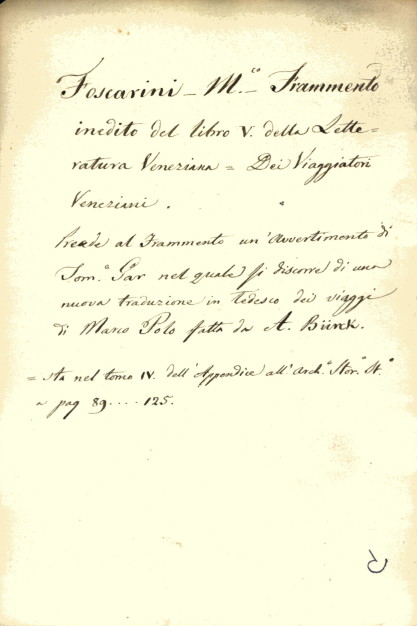 Foscarini _ M.co _ Frammento
inedito del libro V. della Lette=
ratura Veneziana = Dei Viaggiatori
Veneziani .
Precede al Frammento un' Avvertimento di
Tom.o Gar nel quale si discorre di una
nuova traduzione in Tedesco dei viaggi
di Marco Polo fatta da A. Bürck.
= sta nel tomo IV. dell'Appendice all'Arch.o Stor.o It.o
a pag 89 .... 125.